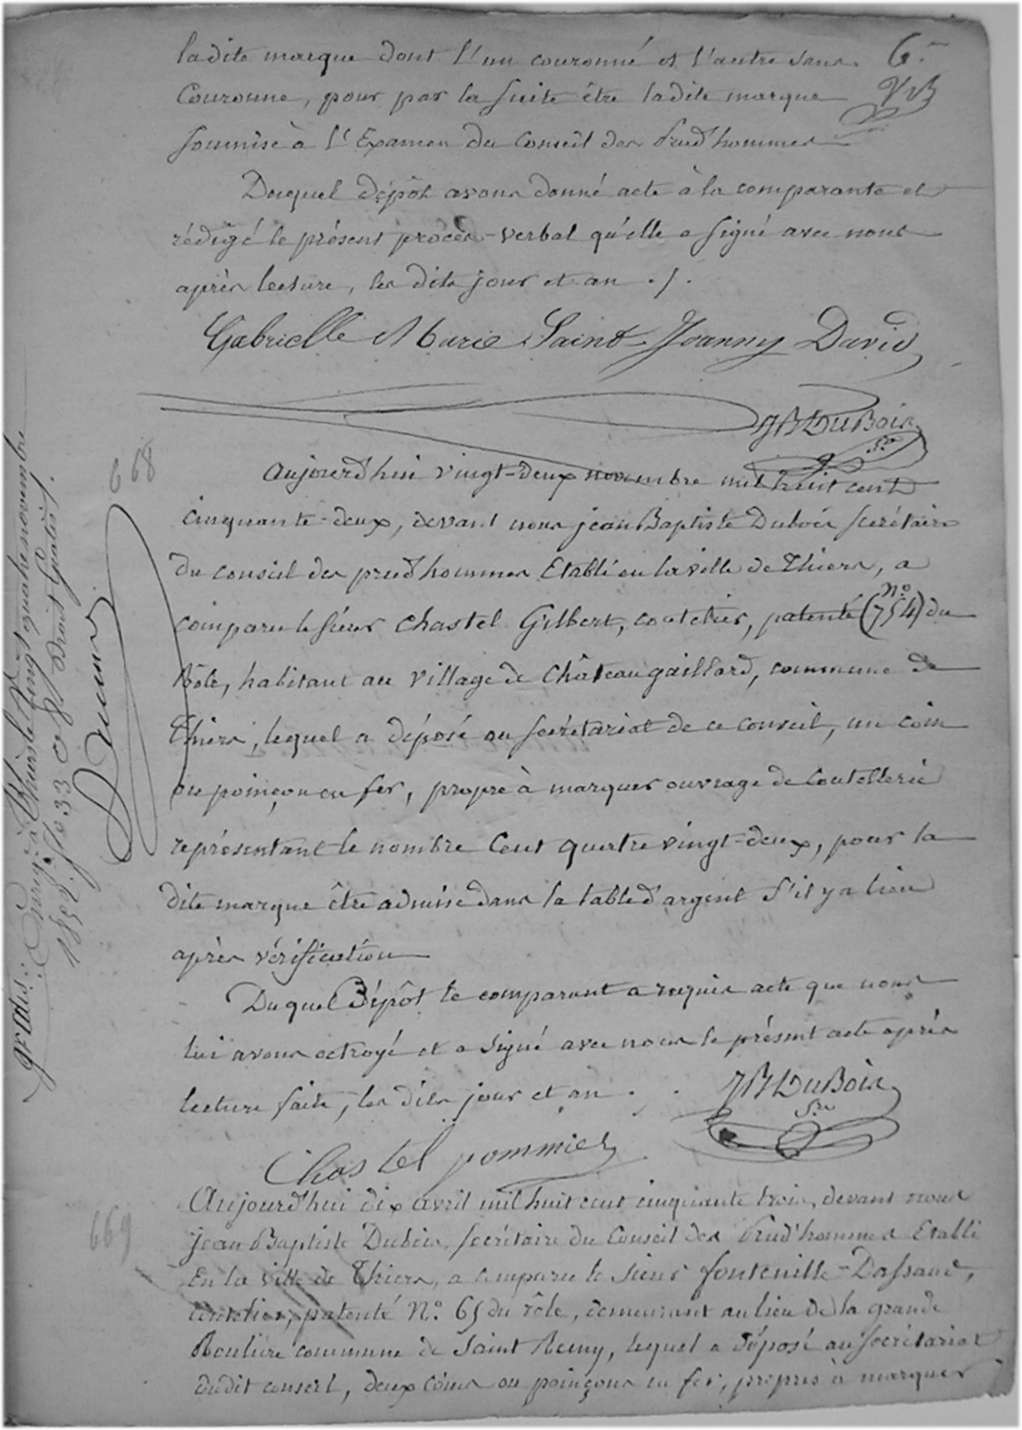 la dite marque dont l'un couronné et l'autre sans
6
couronne, pour par la suite être ladite marque
soumise à l'Examen du Conseil des Prud'hommes
Duquel dépôt avons donné acte à la comparante et
rédigé le présent procès-verbal qu'elle a signé avec nous
après lecture, les dits jour et an ./.
Gabrielle Marie Saint Joanny David
JB DuBois
Sre
668
aujourd'hui vingt-deux novembre mil huit cent
cinquante-deux, devant nous jean Baptiste Dubois secrétaire
du conseil des prud'hommes Etabli en la ville de Thiers, a
comparu le sieur Chastel Gilbert, coutelier, patenté (No 754) du
Rôle, habitant au village de Château gaillard, commune de
Thiers, lequel a déposé au secrétariat de ce conseil, un coin
ou poinçon en fer, propre à marquer ouvrage de Coutellerie
représentant le nombre Cent quatre vingt-deux, pour la
dite marque être admise dans la table d'argent s'il y a lieu
après vérification
Duquel Dépôt le comparant a requis acte que nous
lui avons octroyé et a signé avec nous le présent acte après
lecture faite, les dits jour et an .
JB DuBois
Sre
Chastel pommier
gratis. à Thiers le vingt quatre novembre
1852. fo 33
669
Aujourd'hui dix avril mil huit cent cinquante trois, devant nous
jean Baptiste Dubois, secrétaire du Conseil des Prud'hommes Etabli
En la ville de Thiers, a comparu le sieur fontenille-Dassaud,
coutelier, patenté No. 65 du rôle, demeurant au lieu de la grande
Rouliere commune de Saint Remy, lequel a déposé au secrétariat
dudit conseil, deux Coins ou poinçons en fer, propres à marquer